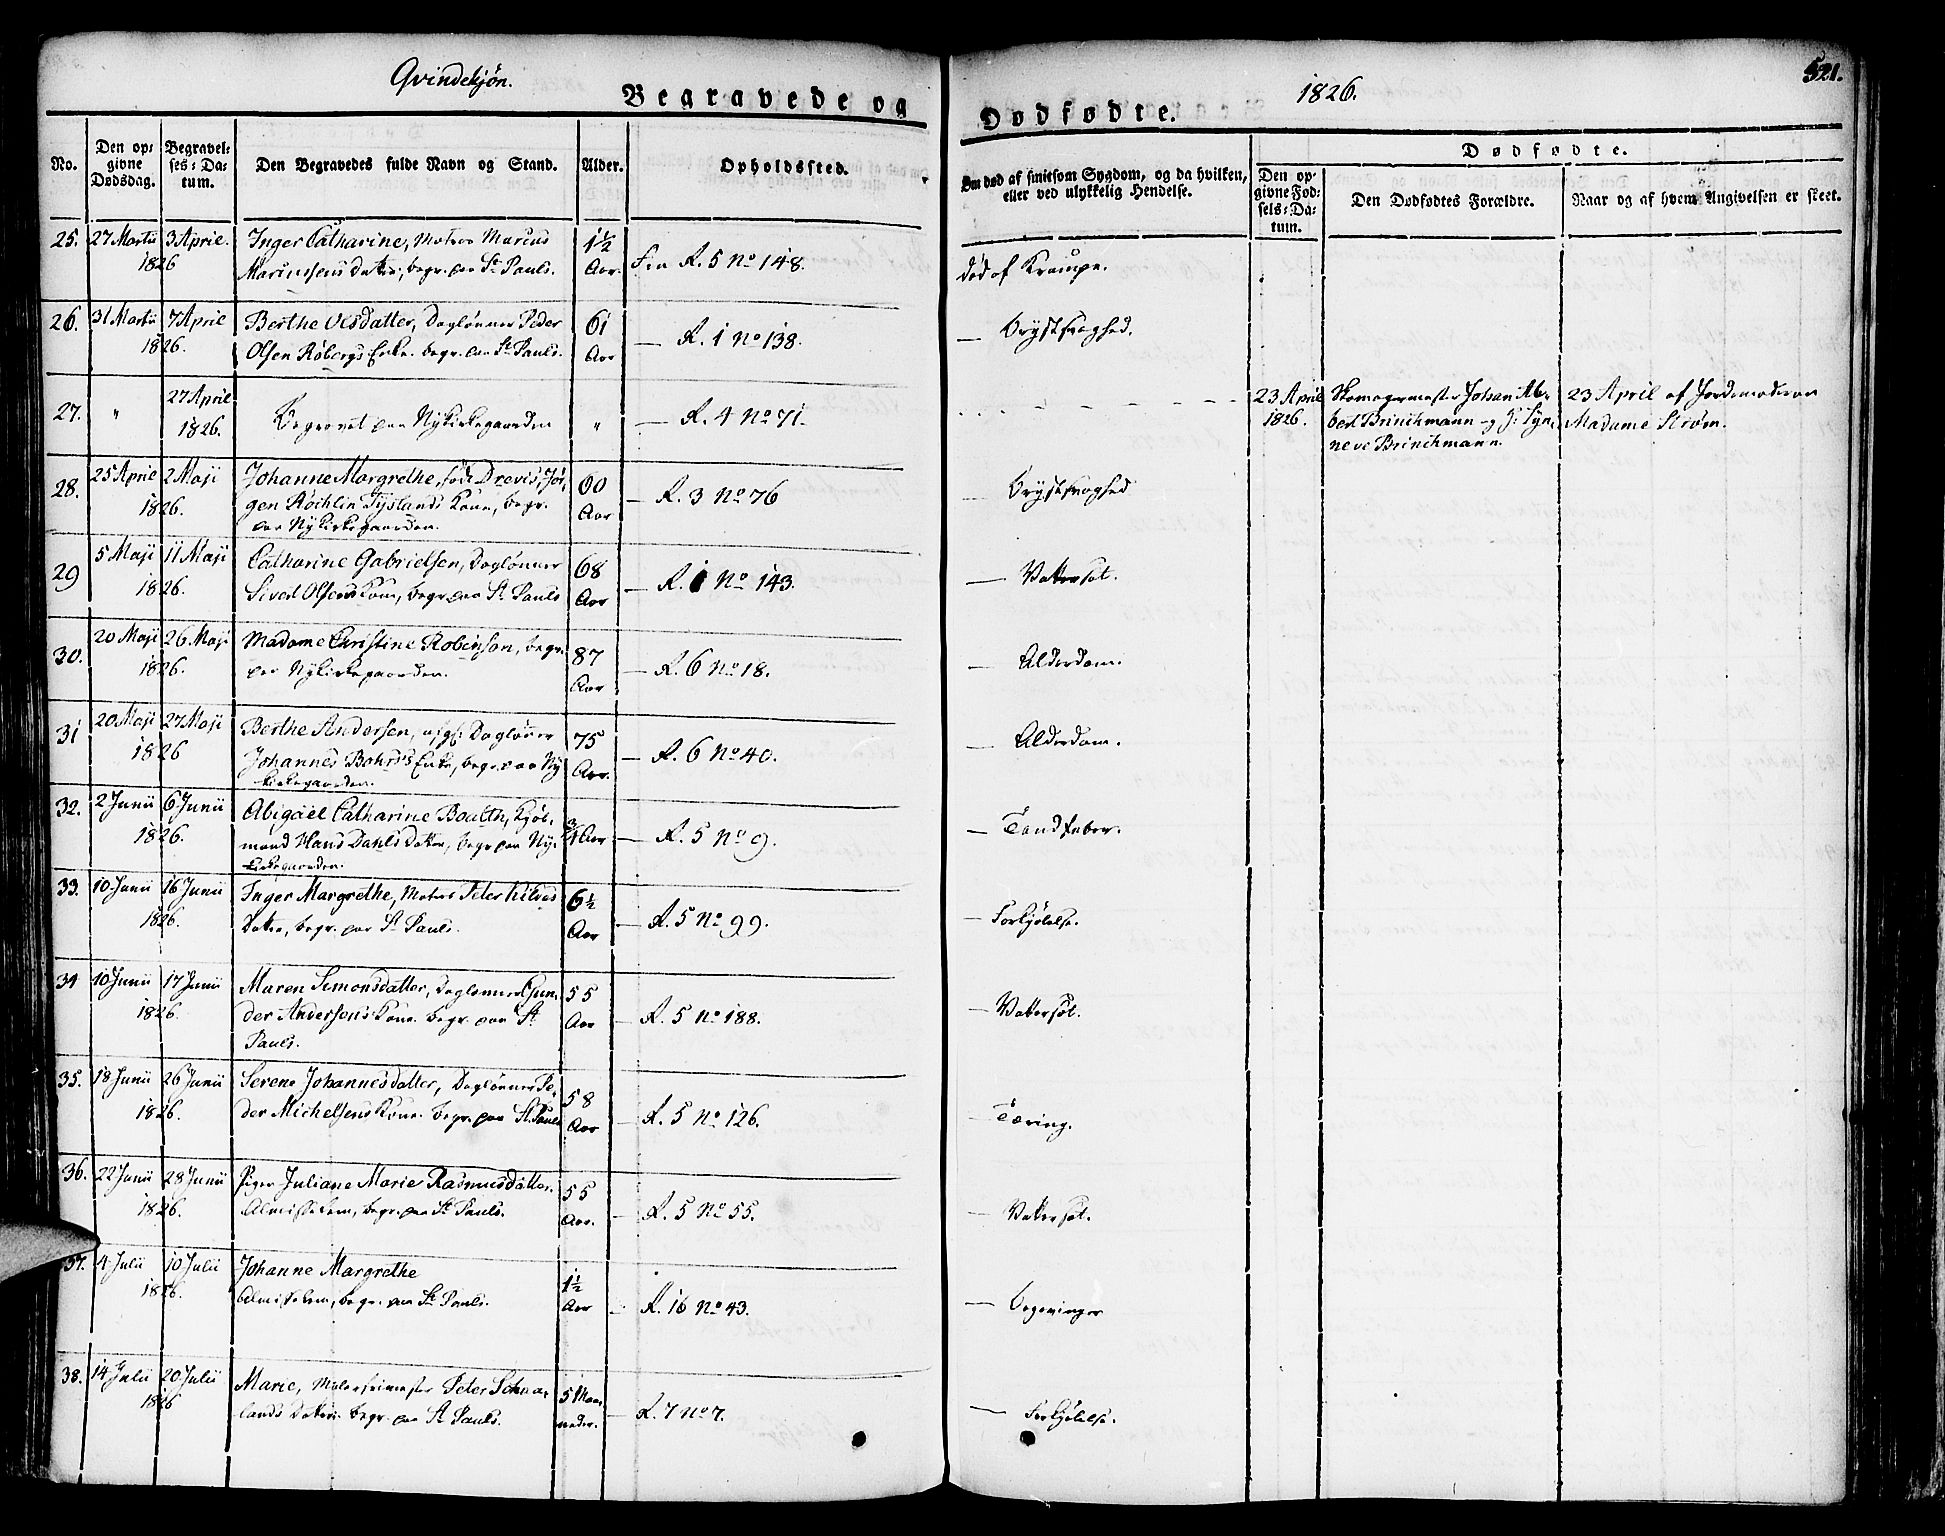 Qvindekjøn.
Begravede og
No.
Den opgivne Dødsdag.
Begravelses-Datum.
Den Begravedes fulde Navn og Stand.
Alder.
Opholdssted.
25. 27 Martii 3 April. Inger Catharine, Matros Marcus 1½
1826 Marcussens Datter, begr. paa St. Pauls. Aar. Fra R. 5 No 148.
26. 31 Martii 7 April Berthe Olsdatter, Daglønner Peder 61
1826. Olsen Røbergs Enke. begr. paa St. Pauls. Aar — R. 1 No 138.
27. " 27 April
1826. Begravet paa Nykirkegaarden " — R. 4 No 71.
28. 25 April 2 Maji Johanne Margrethe, fød Drevis, Jør- 60
1826. gen Røchlin Tyslands Kone, begr. Aar — R. 3 No 76
paa Nykirkegaarden.
29 5 Maji 11 Maji Catharine Gabrielsen, Daglønner 68
1826. Sived Olsens Kone, begr. paa St. Pauls Aar — R. 1 No 143.
30. 20 Maji 26. Maji Madame Christine Robinson, begr. 87
1826. paa Nykirkegaarden. Aar — R. 6 No 18.
31 20 Maji 27 Maji Berthe Andersen, afg: Dagløner 75
1826 Johannes Bohrs Enke, begr. paa Ny Aar. — R. 6 No 40.
kirkegaarden.
32. 2 Junii 6 Junii Abigael Catharine Boalth, Kjøb-
1826. mand Hans Dahls Datter, begr. paa Ny- ¾ Aar — R. 5 No 9.
kirkegaarden.
33. 10 Junii 16 Junii Inger Margrethe, Matros Peter 6½
1826. Datter, begr. paa St. Pauls. Aar — R. 5 No 99.
34 10 Junii 17 Junii Maren Simonsdatter, Dagløner Gun- 55
1826. der Andersens Kone. begr. paa St. Aar — R. 5 No 188.
Pauls.
35. 18 Junii 26 Junii Serene Johannesdatter, Daglønner Pe- 58
1826. der Michelsens Kone. begr. paa St. Pauls Aar — R. 5 No 126.
36. 22 Junii 28 Junii Pigen Juliane Marie Rasmusdatter. 55
1826. Almisselem, begr. paa St. Pauls. Aar. — R. 5 No 55.
37. 4 Julii 10 Julii Johanne Margrethe 1½
1826. Almisselem, begr. paa St. Pauls. Aar — R. 16 No 43.
38. 14 Julii 20 Julii Marie, Malersvend Peter 5 Maa-
1826 lands Datter. begr. paa St. Pauls. neder. — R. 7 No 7.
1826.
521.
Dødfødte.
Om død af smitsom Sygdom, og da hvilken,
eller ved ulykkelig Hendelse.
Dødfødte.
Den opgivne Fødsels-Datum.
Den Dødfødtes Forældre.
Naar og af hvem Angivelsen er skeet.
død af Krampe.
— Brystsvaghed.
23 April Skomagermester Johan Al- 23 April af Jordemoderen
1826. bert Brinchmann og H: Syn- Madame Strøm.
neve Brinchmann.
— Brystsvaghed
— Vattersot.
— Alderdom.
— Alderdom.
— Tandfeber.
— Forkjølelse.
— Vattersot.
— Tæring.
— Vattersot.
—
— Forkjølelse.